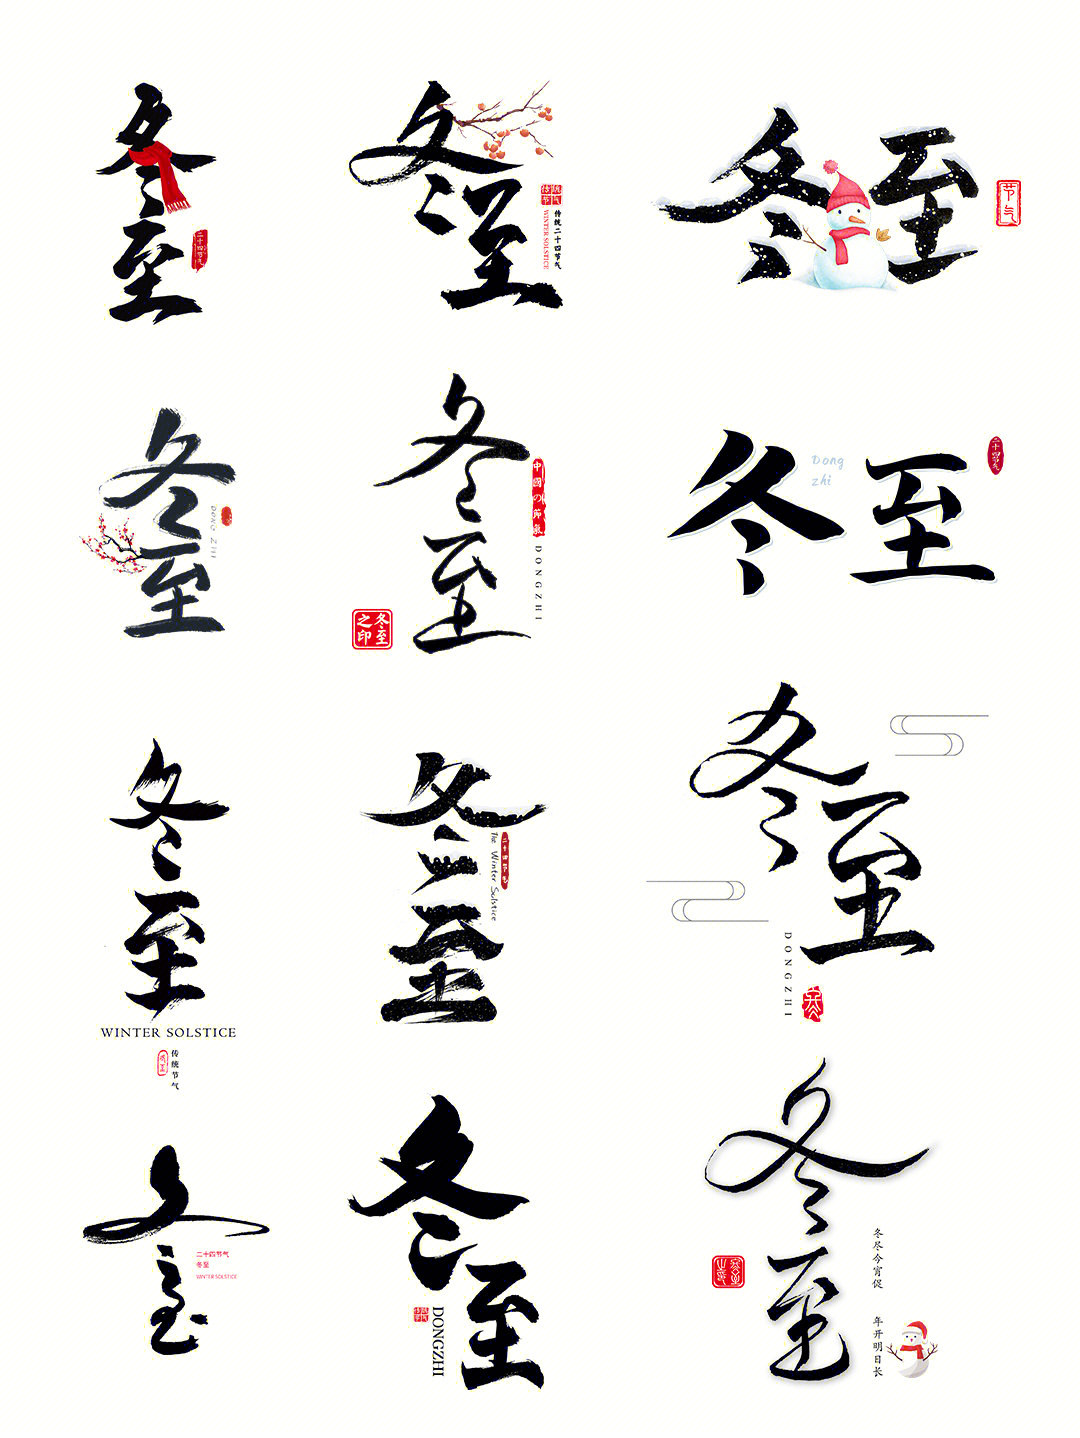 冬至
二十四节气
冬至
传统节气
传统二十四节气
WINTER SOLSTICE
冬至
节气
冬至
DONG ZHI
冬至
中國の節氣
DONGZHI
冬至之印
冬至
Dong
zhi
二十四节气
冬至
WINTER SOLSTICE
冬至
传统节气
冬至
二十四节气
The Winter Solstice
冬至
DONGZHI
冬至
二十四节气
冬至
WINTER SOLSTICE
冬至
DONGZHI
冬至
冬尽今宵促
年开明日长